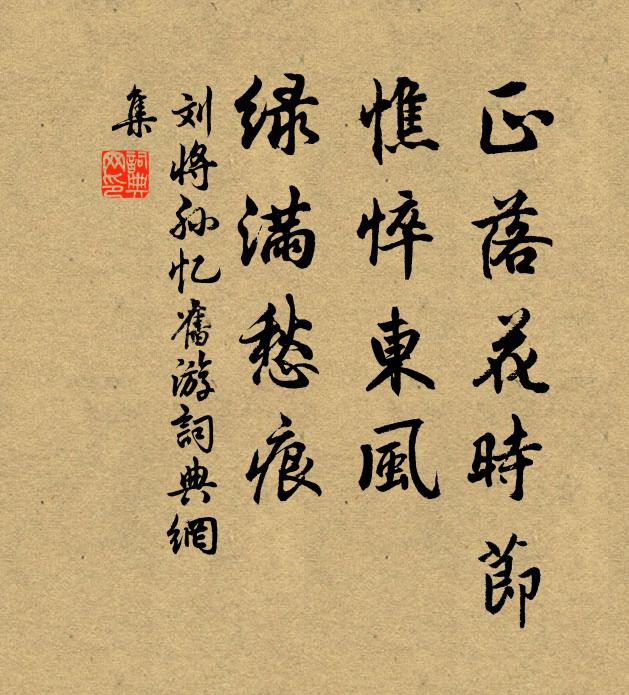 正落花時節
憔悴東風
绿满愁痕
刘将孙忆舊游詞典網
集
詞典网印